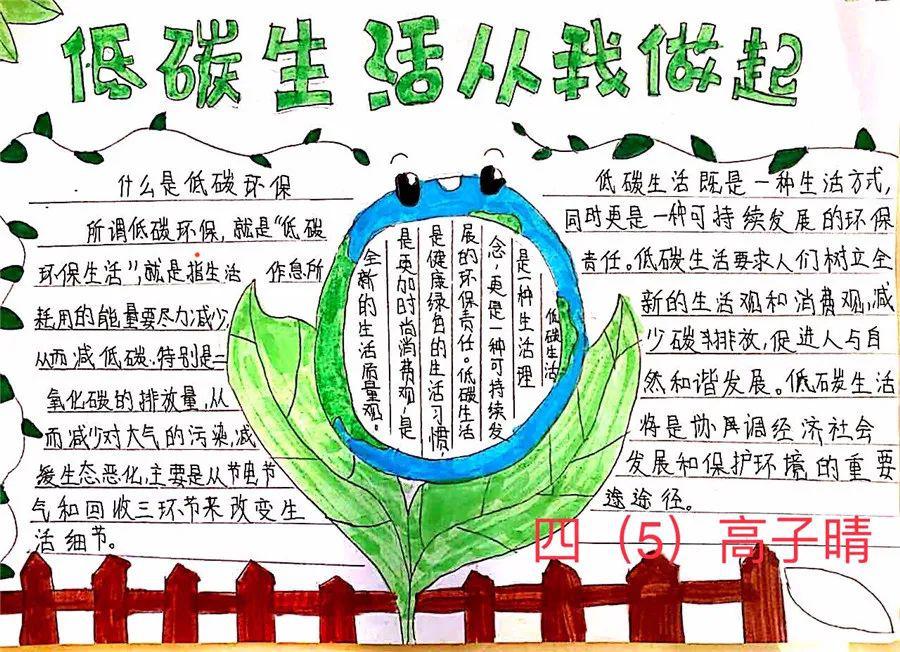 低碳生活从我做起
什么是低碳环保
所谓低碳环保,就是“低碳
环保生活”,就是指生活 作息所
耗用的能量要尽力减少,
从而减低碳.特别是二
氧化碳的排放量,从
而减少对大气的污染,减
缓生态恶化,主要是从节电节
气和回收三环节来改变生
活细节。
低碳生活
是一种生活理
念,更是一种可持续发
展的环保责任。低碳生活
是健康绿色的生活习惯,
是更加时尚消费观,是
全新的生活质量观。
低碳生活既是一种生活方式,
同时更是一种可持续发展的环保
责任。低碳生活要求人们树立全
新的生活观和消费观,减
少碳排放,促进人与自
然和谐发展。低碳生活
将是协调经济社会
发展和保护环境的重要
途途径。
四(5)高子晴